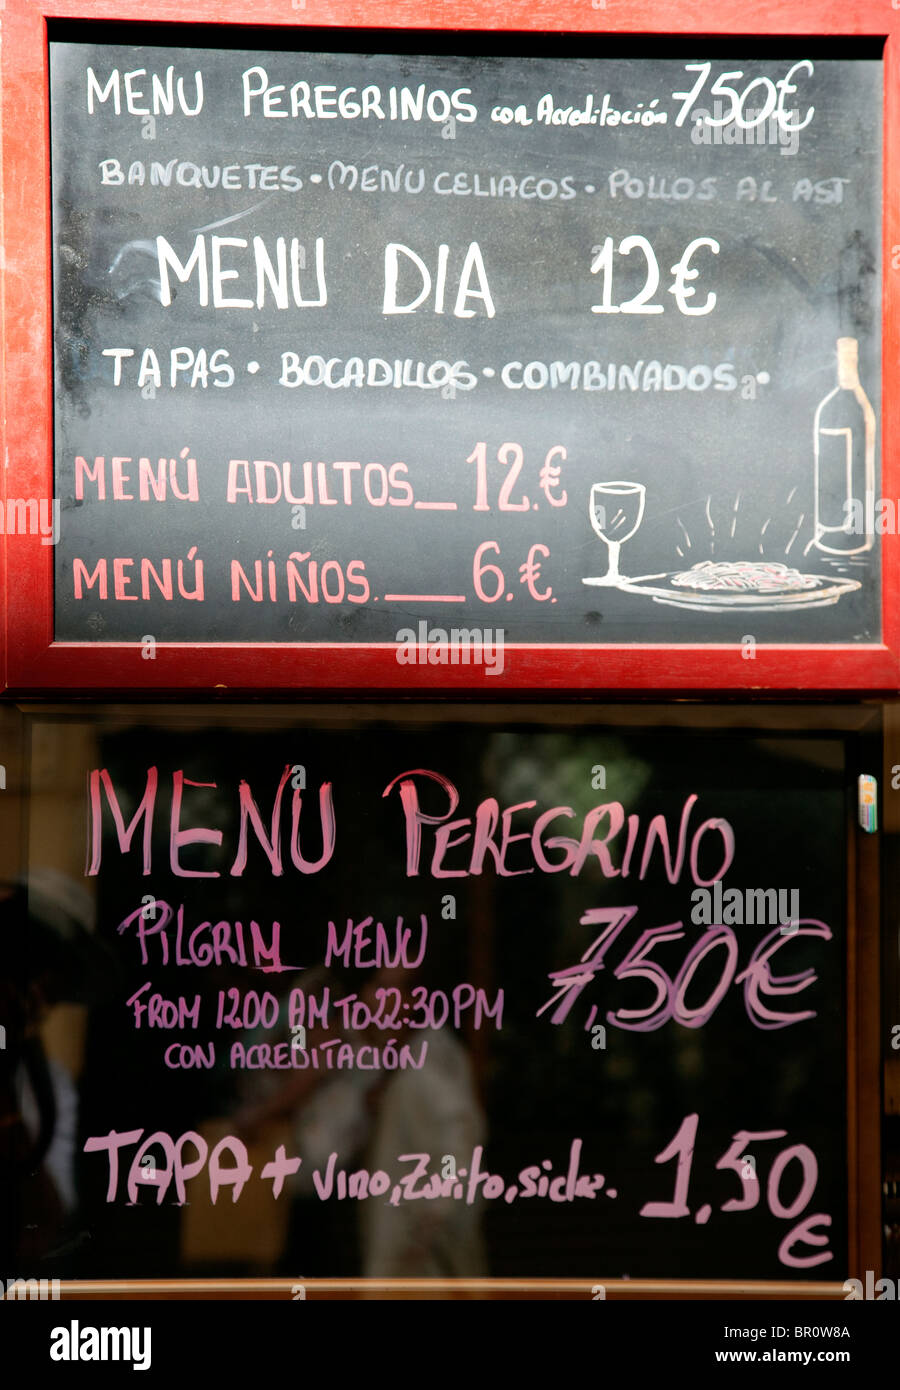 MENU PEREGRINOS con Acreditación 7,50€
BANQUETES · MENU CELIACOS · POLLOS AL AST
MENU DIA 12€
TAPAS · BOCADILLOS · COMBINADOS ·
MENÚ ADULTOS_12.€
MENÚ NIÑOS.__6.€.
MENU PEREGRINO
PILGRIM MENU 7,50€
FROM 12:00 AM TO 22:30 PM
CON ACREDITACIÓN
TAPA + vino, Zurito, sidra. 1,50 €
alamy
Image ID: BR0W8A
www.alamy.com